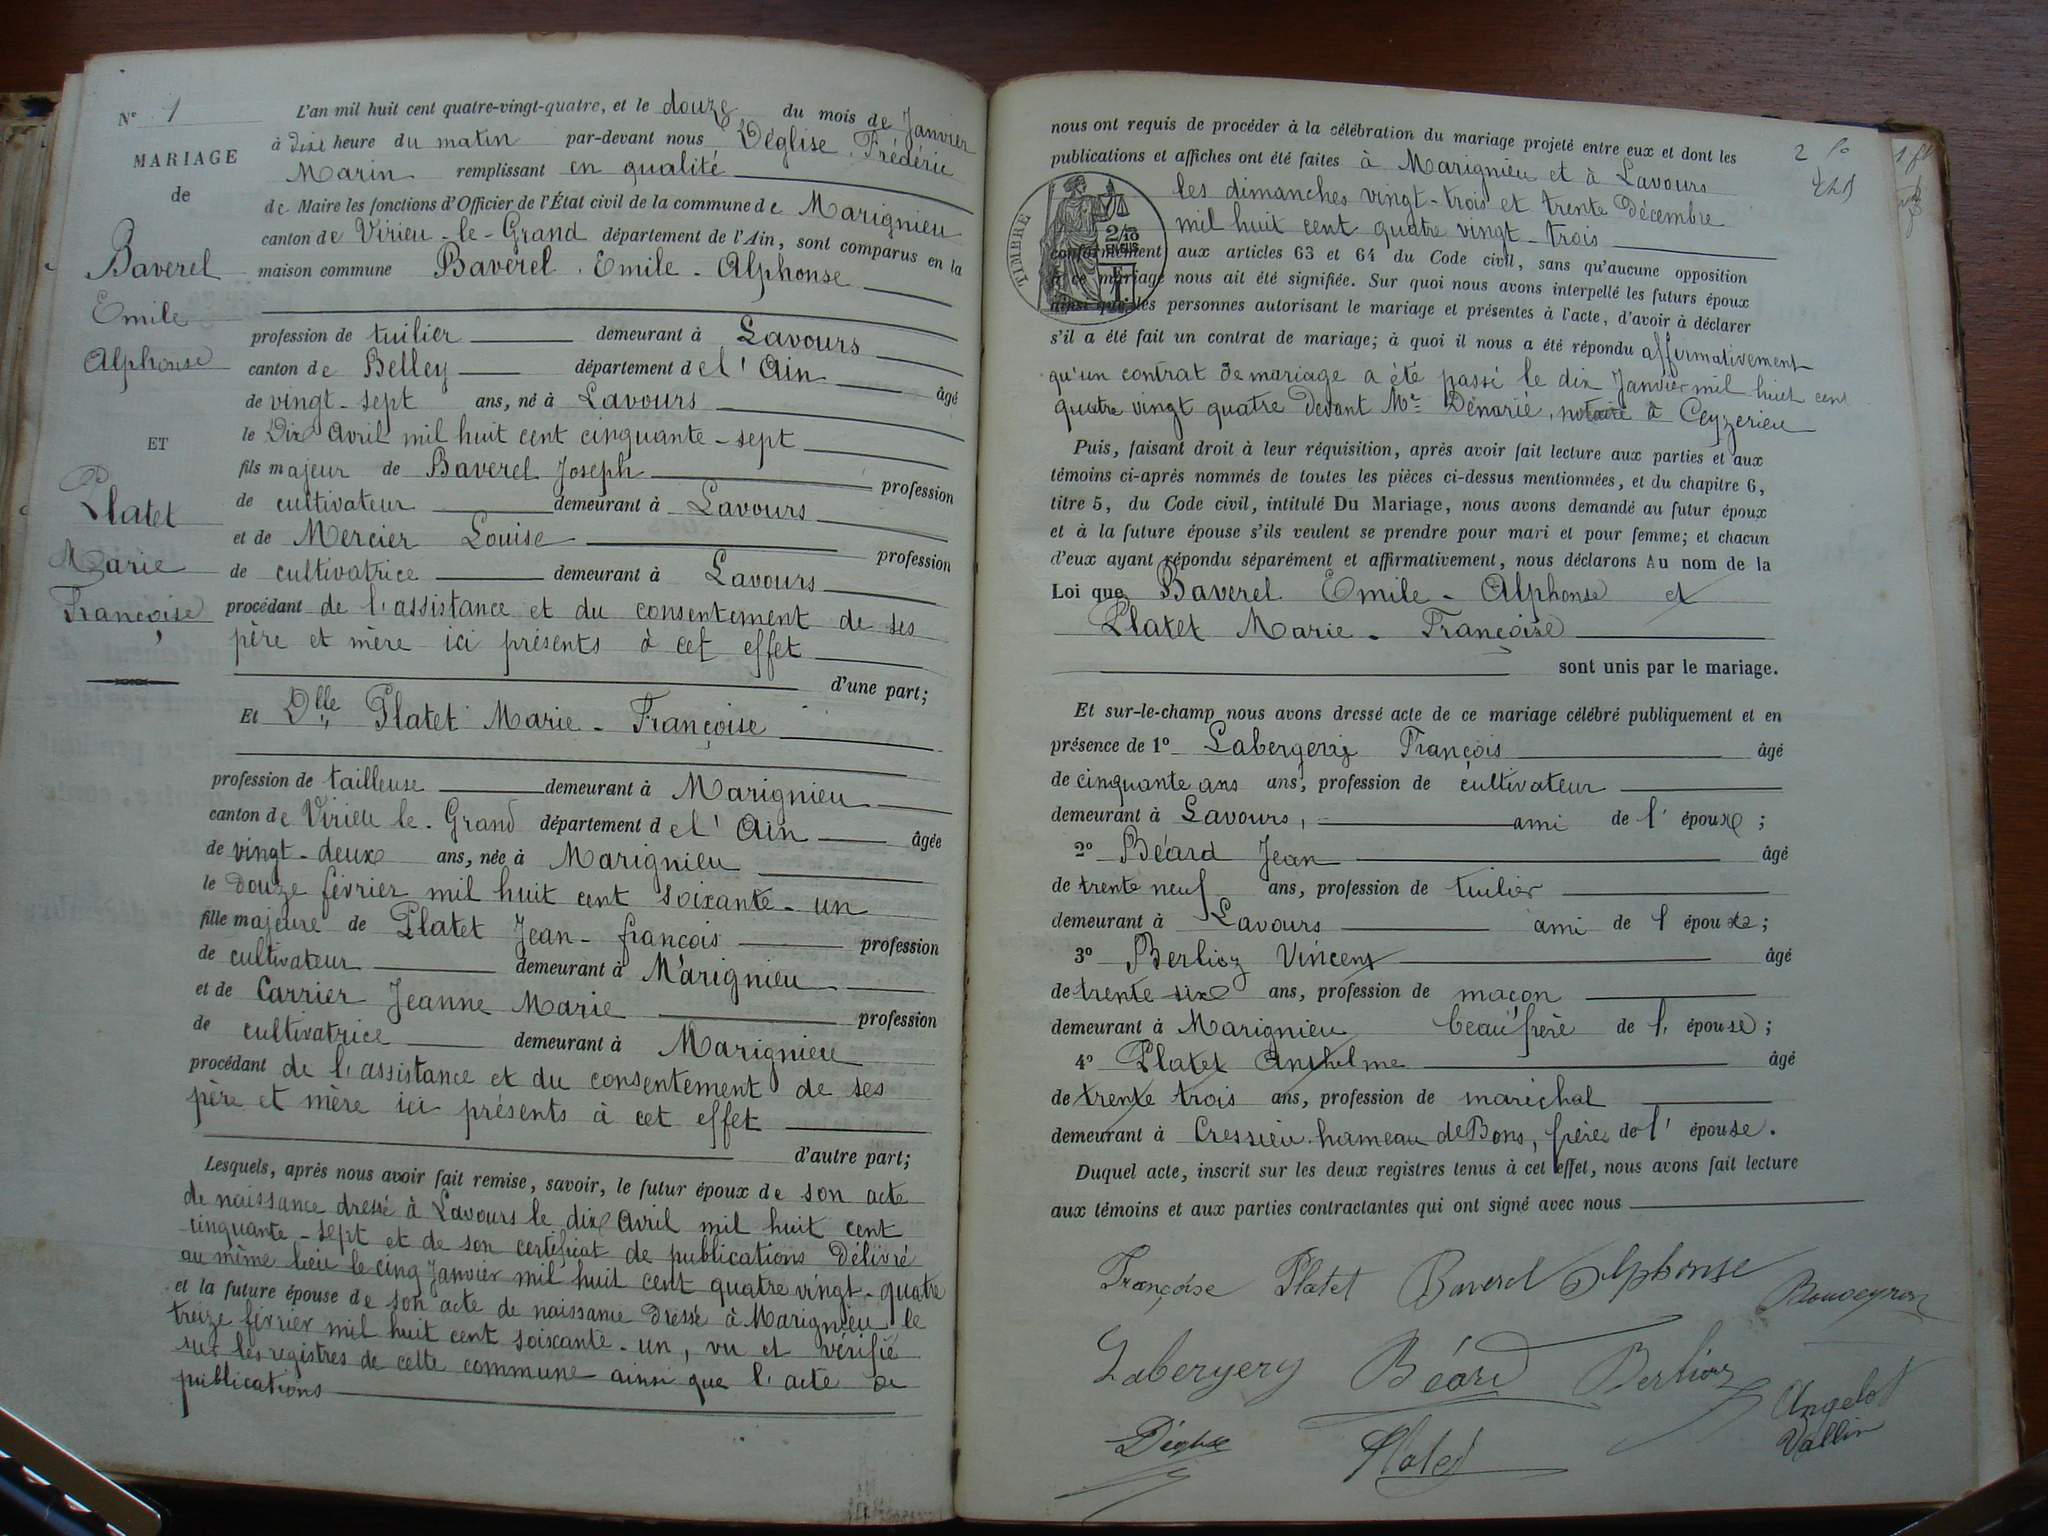 N° 1
MARIAGE
de
Baverel
Emile
Alphonse
ET
Platet
Marie
Françoise
L'an mil huit cent quatre-vingt-quatre, et le douze du mois de Janvier
à dix heure du matin par-devant nous, Déglise, Frédéric
Marin remplissant en qualité
de Maire les fonctions d'Officier de l'État civil de la commune de Marignieu
canton de Virieu-le-Grand département de l'Ain, sont comparus en la
maison commune Baverel, Emile-Alphonse
profession de tuilier demeurant à Lavours
canton de Belley département de l'Ain âgé
de vingt-sept ans, né à Lavours
le Dix Avril mil huit cent cinquante-sept
fils majeur de Baverel Joseph profession
de cultivateur demeurant à Lavours
et de Mercier Louise profession
de cultivatrice demeurant à Lavours
procédant de l'assistance et du consentement de ses
père et mère ici présents à cet effet
d'une part;
Et Dlle Platet Marie-Françoise
profession de tailleuse demeurant à Marignieu
canton de Virieu le-Grand département de l'Ain âgée
de vingt-deux ans, née à Marignieu
le douze février mil huit cent soixante-un
fille majeure de Platet Jean-françois profession
de cultivateur demeurant à Marignieu
et de Carrier Jeanne Marie profession
de cultivatrice demeurant à Marignieu
procédant de l'assistance et du consentement de ses
père et mère ici présents à cet effet
d'autre part;
Lesquels, après nous avoir fait remise, savoir, le futur époux de son acte
de naissance dressé à Lavours le dix Avril mil huit cent
cinquante-sept et de son certificat de publications délivré
au même lieu le cinq Janvier mil huit cent quatre vingt-quatre
et la future épouse de son acte de naissance dressé à Marignieu le
treize février mil huit cent soixante-un, vu et vérifié
sur les registres de cette commune ainsi que l'acte de
publications
nous ont requis de procéder à la célébration du mariage projeté entre eux et dont les
publications et affiches ont été faites à Marignieu et à Lavours
les dimanches vingt-trois et trente Décembre
mil huit cent quatre vingt-trois
TIMBRE
2/10
EN SUS
conformément aux articles 63 et 64 du Code civil, sans qu'aucune opposition
à ce mariage nous ait été signifiée. Sur quoi nous avons interpellé les futurs époux
ainsi que les personnes autorisant le mariage et présentes à l'acte, d'avoir à déclarer
s'il a été fait un contrat de mariage; à quoi il nous a été répondu affirmativement
qu'un contrat de mariage a été passé le dix Janvier mil huit cent
quatre vingt quatre devant Me Dénarié, notaire à Ceyzerieu
Puis, faisant droit à leur réquisition, après avoir fait lecture aux parties et aux
témoins ci-après nommés de toutes les pièces ci-dessus mentionnées, et du chapitre 6,
titre 5, du Code civil, intitulé Du Mariage, nous avons demandé au futur époux
et à la future épouse s'ils veulent se prendre pour mari et pour femme; et chacun
d'eux ayant répondu séparément et affirmativement, nous déclarons Au nom de la
Loi que Baverel Emile-Alphonse et
Platet Marie-Françoise
sont unis par le mariage.
Et sur-le-champ nous avons dressé acte de ce mariage célébré publiquement et en
présence de 1° Labergerie François âgé
de cinquante ans ans, profession de cultivateur
demeurant à Lavours, ami de l'époux;
2° Béard Jean âgé
de trente neuf ans, profession de tuilier
demeurant à Lavours ami de l'époux;
3° Berlioz Vincent âgé
de trente six ans, profession de maçon
demeurant à Marignieu beau frère de l'épouse;
4° Platet Anthelme âgé
de trente trois ans, profession de maréchal
demeurant à Cressieu hameau de Bons, frère de l'épouse.
Duquel acte, inscrit sur les deux registres tenus à cet effet, nous avons fait lecture
aux témoins et aux parties contractantes qui ont signé avec nous
Françoise Platet Baverel Alphonse Bouveyron
Labergery Béard Berlioz Angelot
Vallin
Déglise Platet